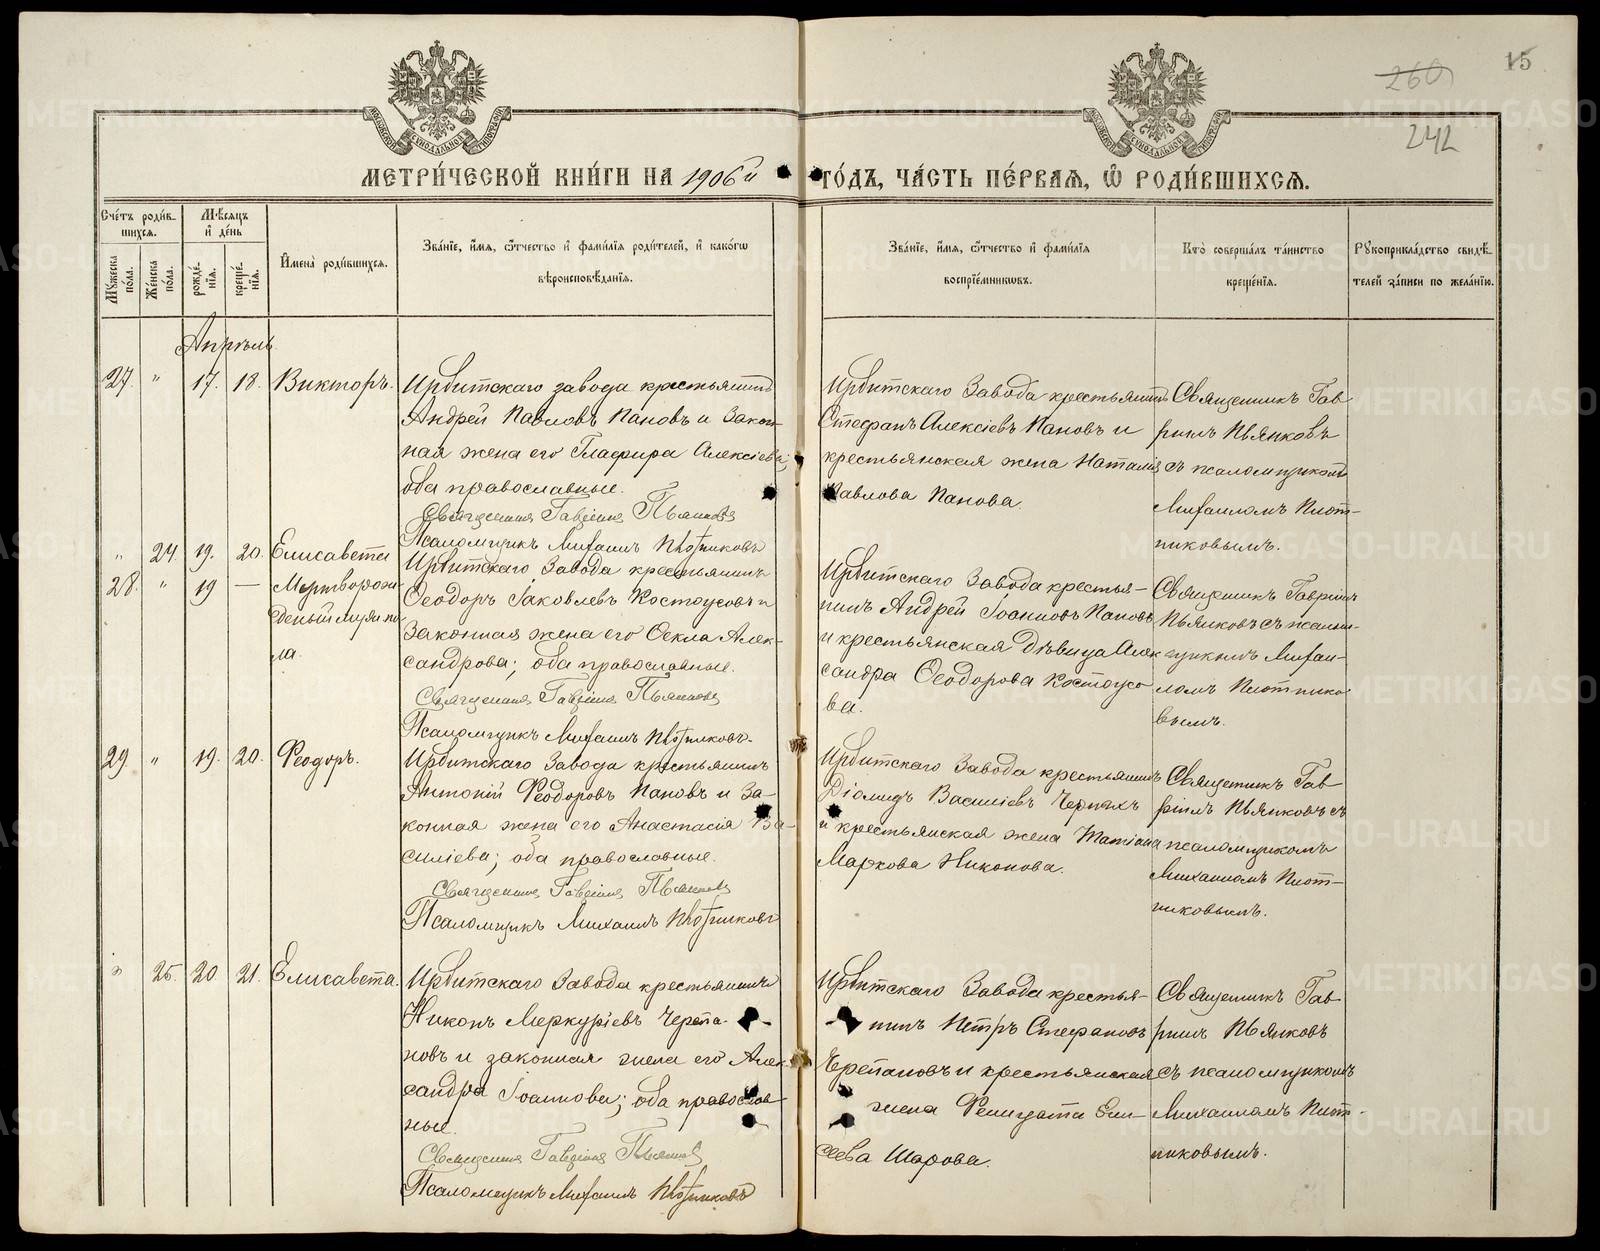 15
260
242
МЕТРИ́ЧЕСКОЙ КНИ́ГИ НА 1906й ГО́ДЪ, ЧА́СТЬ ПЕ́РВАЯ, Ѡ РОДИ́ВШИХСЯ.
Сче́тъ роди́вшихся.
Му́жеска по́ла.
Же́нска по́ла.
Мѣ́сяцъ и де́нь
рожде́нія.
креще́нія.
И́мена роди́вшихся.
Зва́ніе, и́мя, ѻ́тчество и фами́лія роди́телей, и како́гѡ
вѣроисповѣ́данія.
Зва́ніе, и́мя, ѻ́тчество и фами́лія
воспріе́мниковъ.
Кто̀ соверша́лъ та́инство
креще́нія.
Рꙋкоприкла́дство свидѣ́-
телей за́писи по жела́нію.
Апрѣль
27. " 17. 18. Викторъ.
Ирбитскаго завода крестьянинъ
Андрей Павловъ Пановъ и закон-
ная жена его Глафира Алексіева;
оба православные.
Священникъ Гавріилъ Пьянковъ
Псаломщикъ Михаилъ Плотниковъ
Ирбитскаго Завода крестьянинъ
Стефанъ Алексіевъ Пановъ и
крестьянская жена Наталія
Павлова Панова.
Священникъ Гав-
ріилъ Пьянковъ
съ псаломщикомъ
Михаиломъ Плот-
никовымъ.
" 24. 19. 20. Елисавета
28. " 19 — Мертворож-
денный муж. по-
ла.
Ирбитскаго Завода крестьянинъ
Ѳеодоръ Іаковлевъ Костоусовъ и
законная жена его Ѳекла Алек-
сандрова; оба православные.
Священникъ Гавріилъ Пьянковъ
Псаломщикъ Михаилъ Плотниковъ.
Ирбитскаго Завода крестья-
нинъ Андрей Іоанновъ Пановъ
и крестьянская дѣвица Алек-
сандра Ѳеодорова Костоусо-
ва.
Священникъ Гавріилъ
Пьянковъ съ псалом-
щикомъ Михаи-
ломъ Плотнико-
вымъ.
29 " 19. 20. Ѳеодоръ.
Ирбитскаго Завода крестьянинъ
Антоній Ѳеодоровъ Пановъ и за-
конная жена его Анастасія Ва-
силіева; оба православные.
Священникъ Гавріилъ Пьянковъ
Псаломщикъ Михаилъ Плотниковъ
Ирбитскаго Завода крестьянинъ
Діомидъ Василіевъ Черныхъ
и крестьянская жена Татіана
Маркова Никонова.
Священникъ Гав-
ріилъ Пьянковъ съ
псаломщикомъ
Михаиломъ Плот-
никовымъ.
" 25. 20 21. Елисавета.
Ирбитскаго Завода крестьянинъ
Никонъ Меркуріевъ Черепа-
новъ и законная жена его Алек-
сандра Іоаннова; оба православ-
ные.
Священникъ Гавріилъ Пьянковъ
Псаломщикъ Михаилъ Плотниковъ
Ирбитскаго Завода крестья-
нинъ Петръ Стефановъ
Черепановъ и крестьянская
жена Фелицата Ели-
сеева Шарова.
Священникъ Гав-
ріилъ Пьянковъ
съ псаломщикомъ
Михаиломъ Плот-
никовымъ.